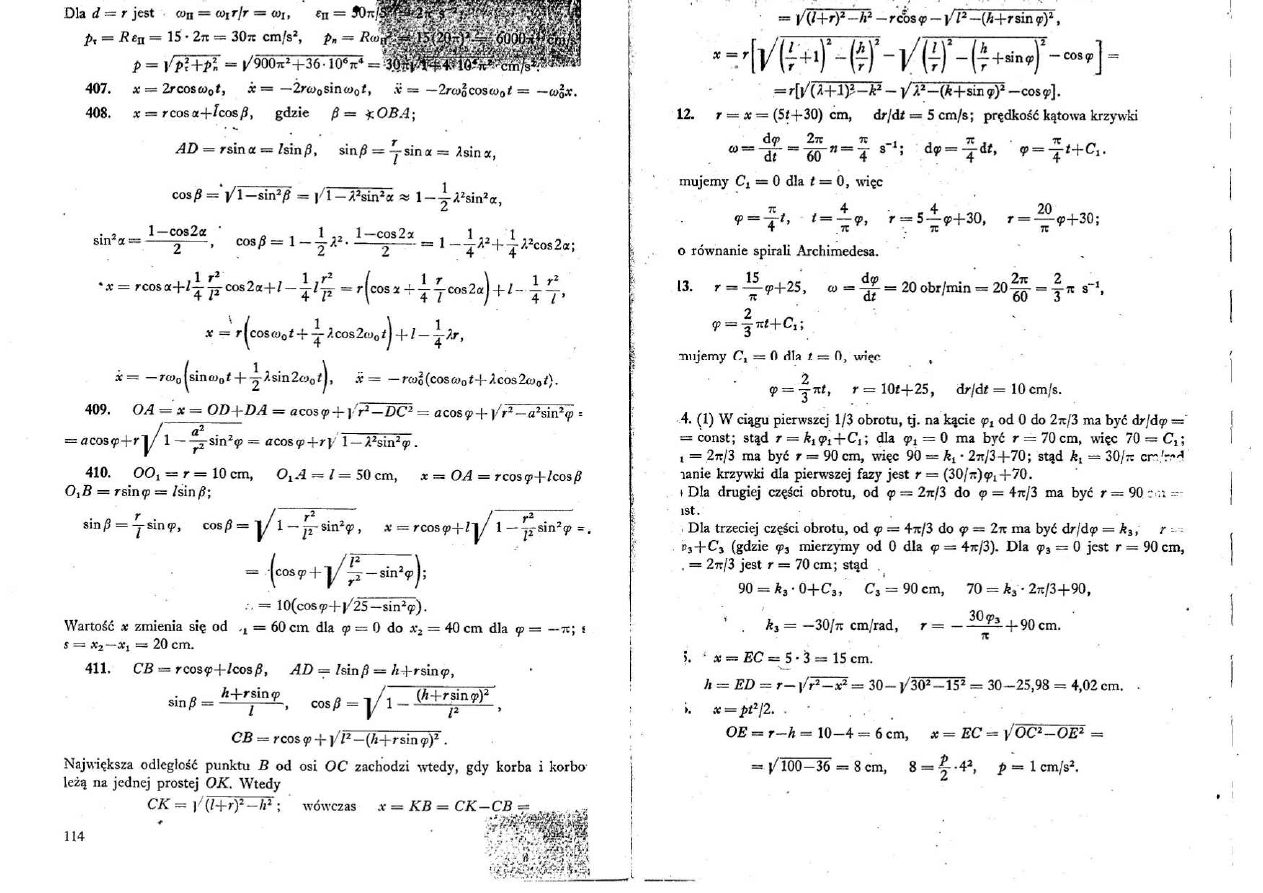 Dla d = r jest ω_II = ω_I r/r = ω_I, ε_II =
p_τ = Rε_II = 15 · 2π = 30π cm/s², p_n =
p = √(p_τ²+p_n²) = √(900π²+36·10⁶π⁴) =
407. x = 2rcosω₀t, ẋ = −2rω₀sinω₀t, ẍ = −2rω₀²cosω₀t = −ω₀²x.
408. x = rcosα+lcosβ, gdzie β = ∢OBA;
AD = rsinα = lsinβ, sinβ = (r/l)sinα = λsinα,
cosβ = √(1−sin²β) = √(1−λ²sin²α) ≈ 1−(1/2)λ²sin²α,
sin²α = (1−cos2α)/2, cosβ = 1−(1/2)λ²·(1−cos2α)/2 = 1−(1/4)λ²+(1/4)λ²cos2α;
x = rcosα+l(1/4)(r²/l²)cos2α+l−(1/4)l(r²/l²) = r(cosα+(1/4)(r/l)cos2α)+l−(1/4)(r²/l),
x = r(cosω₀t+(1/4)λcos2ω₀t)+l−(1/4)λr,
ẋ = −rω₀(sinω₀t+(1/2)λsin2ω₀t), ẍ = −rω₀²(cosω₀t+λcos2ω₀t).
409. OA = x = OD+DA = acosφ+√(r²−DC²) = acosφ+√(r²−a²sin²φ) =
= acosφ+r√(1−(a²/r²)sin²φ) = acosφ+r√(1−λ²sin²φ).
410. OO₁ = r = 10 cm, O₁A = l = 50 cm, x = OA = rcosφ+lcosβ
O₁B = rsinφ = lsinβ;
sinβ = (r/l)sinφ, cosβ = √(1−(r²/l²)sin²φ), x = rcosφ+l√(1−(r²/l²)sin²φ) =
= (cosφ+√(l²/r²−sin²φ));
= 10(cosφ+√(25−sin²φ)).
Wartość x zmienia się od ₁ = 60 cm dla φ = 0 do x₂ = 40 cm dla φ = −π;
s = x₂−x₁ = 20 cm.
411. CB = rcosφ+lcosβ, AD = lsinβ = h+rsinφ,
sinβ = (h+rsinφ)/l, cosβ = √(1−(h+rsinφ)²/l²),
CB = rcosφ+√(l²−(h+rsinφ)²).
Największa odległość punktu B od osi OC zachodzi wtedy, gdy korba i korbo
leżą na jednej prostej OK. Wtedy
CK = √((l+r)²−h²); wówczas x = KB = CK−CB =
114
= √((l+r)²−h²)−rcosφ−√(l²−(h+rsinφ)²),
x = r[√((l/r+1)²−(h/r)²)−√((l/r)²−(h/r+sinφ)²)−cosφ] =
= r[√((λ+1)²−k²)−√(λ²−(k+sinφ)²)−cosφ].
12. r = x = (5t+30) cm, dr/dt = 5 cm/s; prędkość kątowa krzywki
ω = dφ/dt = (2π/60)n = π/4 s⁻¹; dφ = (π/4)dt, φ = (π/4)t+C₁.
mujemy C₁ = 0 dla t = 0, więc
φ = (π/4)t, t = (4/π)φ, r = 5(4/π)φ+30, r = (20/π)φ+30;
o równanie spirali Archimedesa.
13. r = (15/π)φ+25, ω = dφ/dt = 20 obr/min = 20(2π/60) = (2/3)π s⁻¹,
φ = (2/3)πt+C₁;
mujemy C₁ = 0 dla t = 0, więc
φ = (2/3)πt, r = 10t+25, dr/dt = 10 cm/s.
4. (1) W ciągu pierwszej 1/3 obrotu, tj. na kącie φ₁ od 0 do 2π/3 ma być dr/dφ =
= const; stąd r = k₁φ₁+C₁; dla φ₁ = 0 ma być r = 70 cm, więc 70 = C₁;
₁ = 2π/3 ma być r = 90 cm, więc 90 = k₁ · 2π/3+70; stąd k₁ = 30/π cm/rad
anie krzywki dla pierwszej fazy jest r = (30/π)φ₁+70.
Dla drugiej części obrotu, od φ = 2π/3 do φ = 4π/3 ma być r = 90
st.
Dla trzeciej części obrotu, od φ = 4π/3 do φ = 2π ma być dr/dφ = k₃, r =
φ₃+C₃ (gdzie φ₃ mierzymy od 0 dla φ = 4π/3). Dla φ₃ = 0 jest r = 90 cm,
= 2π/3 jest r = 70 cm; stąd
90 = k₃ · 0+C₃, C₃ = 90 cm, 70 = k₃ · 2π/3+90,
k₃ = −30/π cm/rad, r = −30φ₃/π+90 cm.
5. x = EC = 5·3 = 15 cm.
h = ED = r−√(r²−x²) = 30−√(30²−15²) = 30−25,98 = 4,02 cm.
x = pt²/2.
OE = r−h = 10−4 = 6 cm, x = EC = √(OC²−OE²) =
= √(100−36) = 8 cm, 8 = (p/2)·4², p = 1 cm/s².